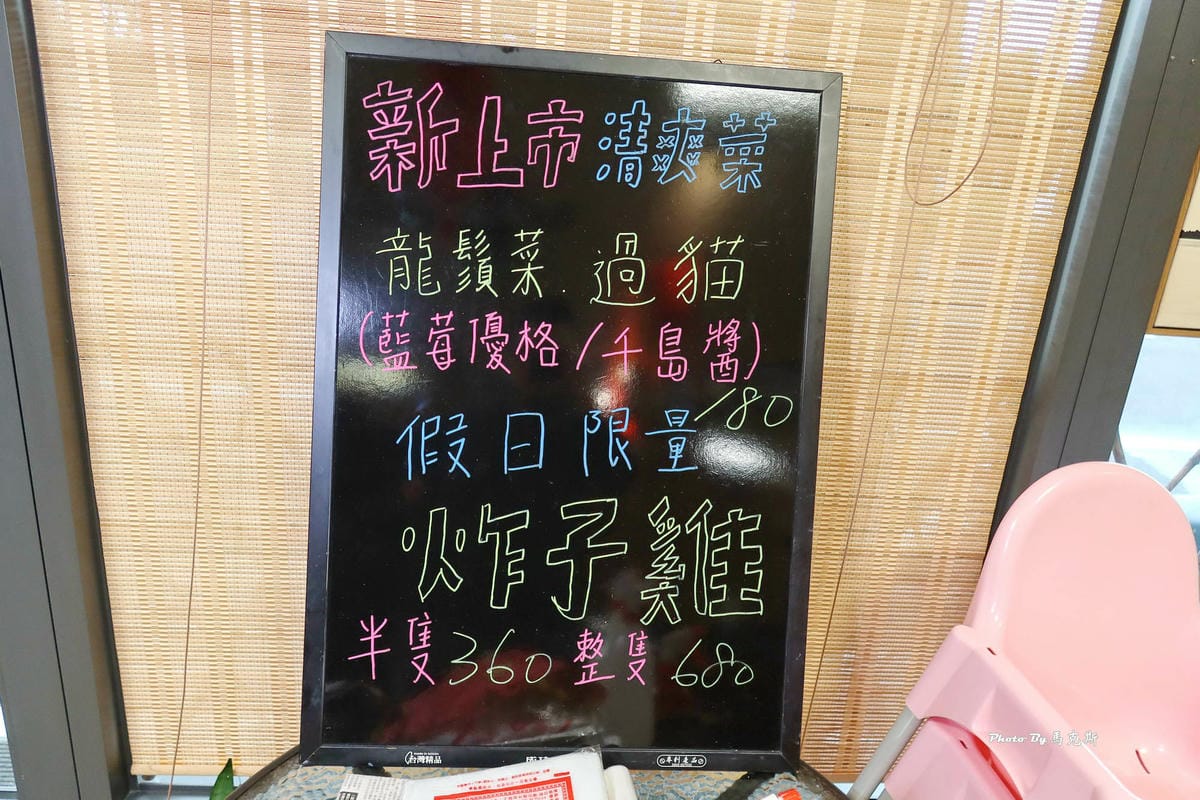 新上市 清爽菜
龍鬚菜.過貓
(藍莓優格/千島醬)
180
假日限量
炸子雞
半隻360 整隻680
台灣精品
專利產品
Photo By 馬克斯